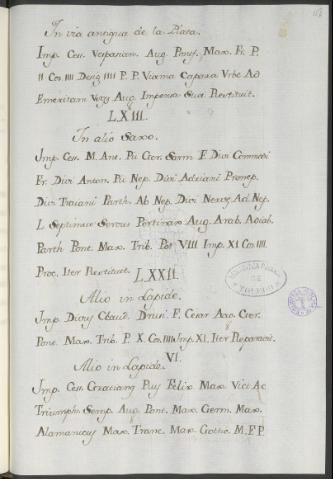 In via antigua de la Plata.
Imp. Ces. Vespasian. Aug. Pony. Max. Fr. P.
II Cos. IIII Desig. IIII P. P. Viama Capara Vrbe Ad
Emeritam Vsqz Aug. Impensa Sua Restituit.
LXIII.
In alio Saxo.
Imp. Ces. M. Ant. Pii Ger. Sarm. F. Divi Commodi
Fr. Divi Anton. Pii Nep. Divi Adriani Pronep.
Divi Traiani Parth. Ab Nep. Divi Nervę Ad Nep.
L. Septimius Severus Pertinax Aug. Arab. Adiab.
Parth. Pont. Max. Trib. Pot. VIII Imp. XI Cos. IIII.
Proc. Iter Restituit.
LXXII.
Alio in Lapide.
Imp. Claud. Drusi. F. Cesar Aug. Ger.
Pont. Max. Trib. P. X. Cos. IIII Imp. XI. Iter Reparavit.
VI.
Alio in Lapide.
Imp. Ces. Puy Felix Max. Vict. Ac
Triumph. Semp. Aug. Pont. Max. Germ. Max.
Alamanicus Max. Franc. Max. Gottic. M. F. P.